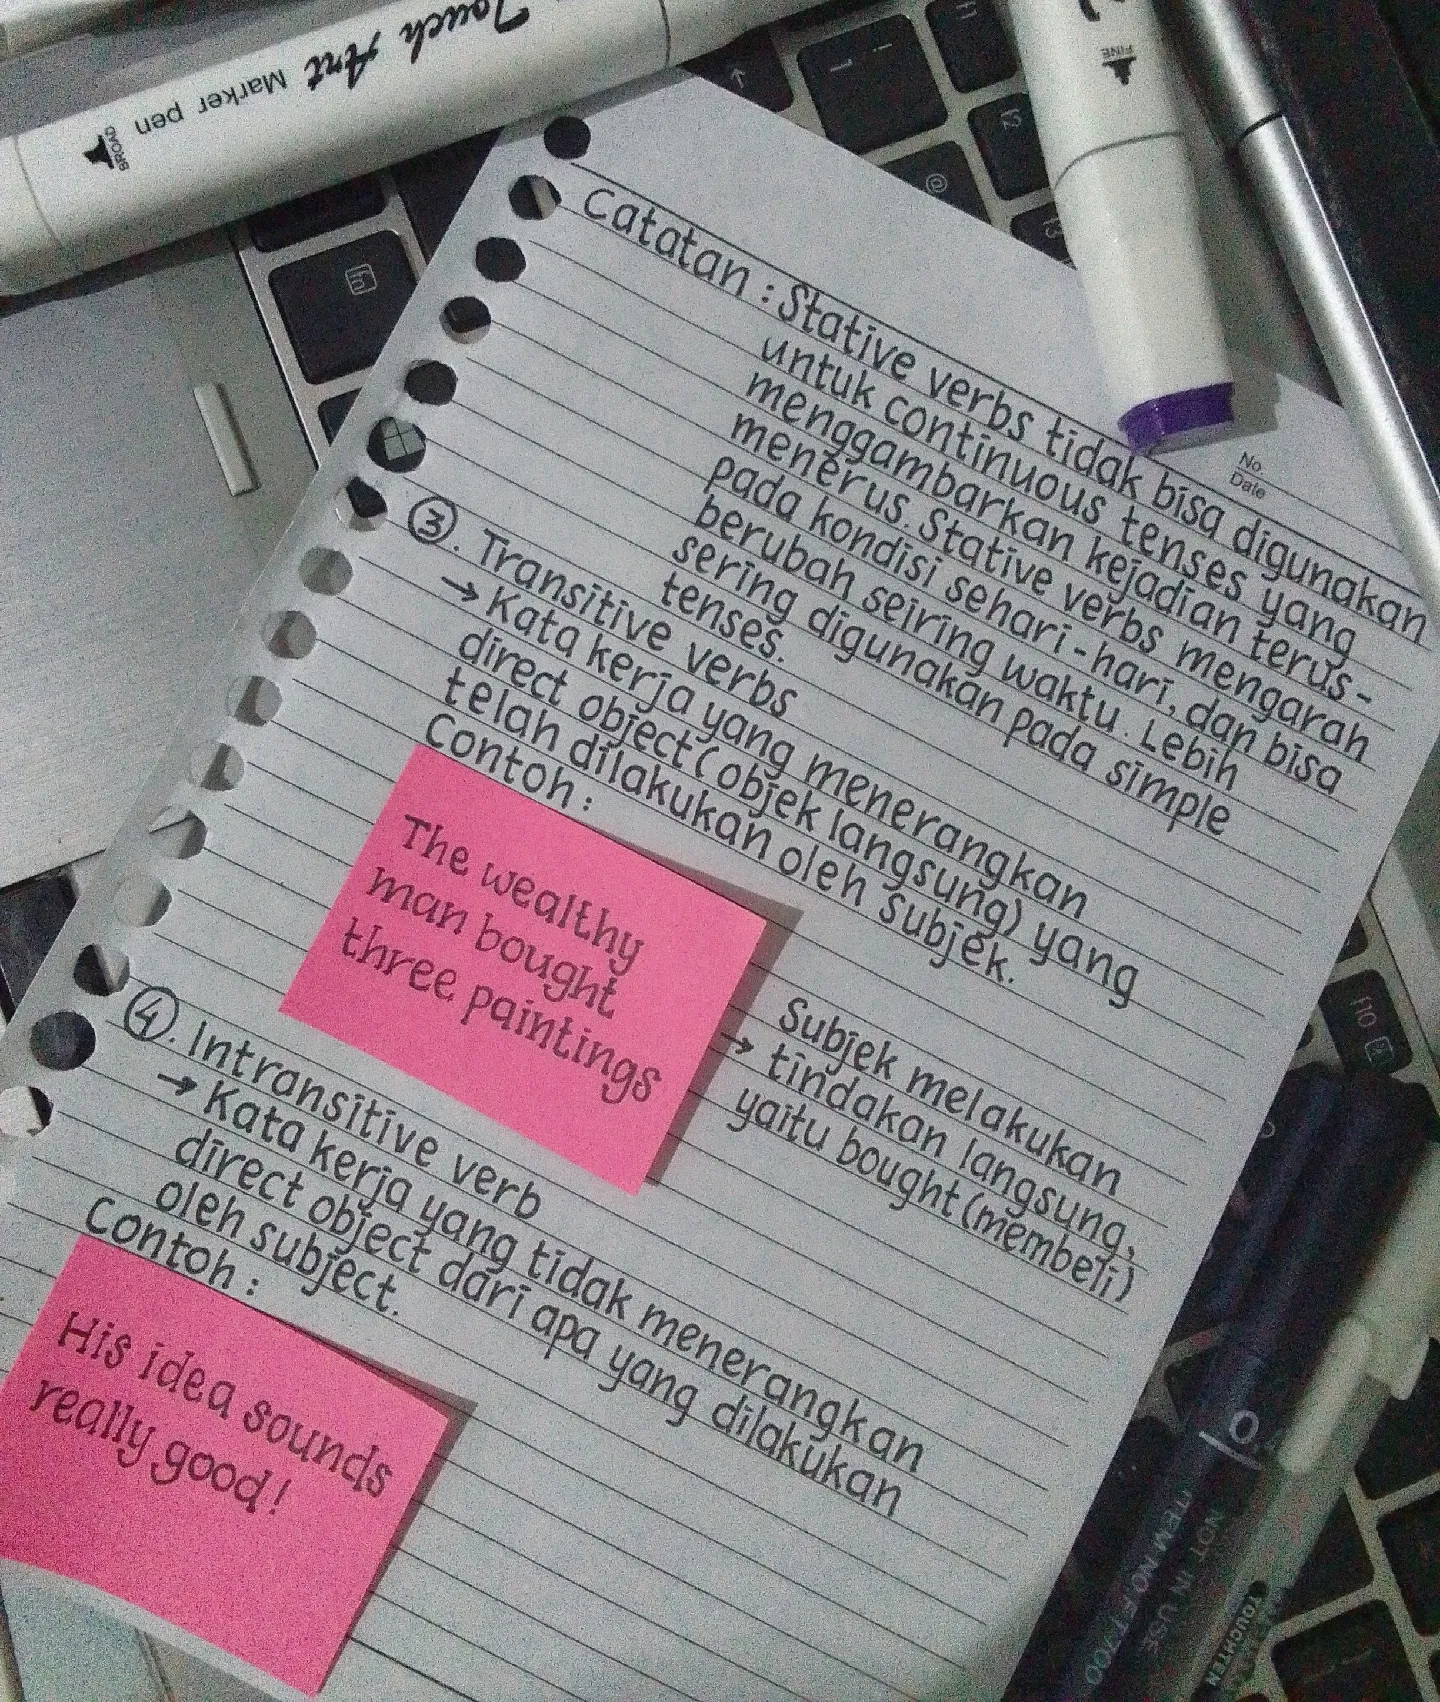 Touch Art
Marker pen
BROAD
FINE
No.
Date
Catatan : Stative verbs tidak bisa digunakan
untuk continuous tenses yang
menggambarkan kejadian terus-
menerus. Stative verbs mengarah
pada kondisi sehari-hari, dan bisa
berubah seiring waktu. Lebih
sering digunakan pada simple
tenses.
3. Transitive verbs
→ Kata kerja yang menerangkan
direct object (objek langsung) yang
telah dilakukan oleh subjek.
Contoh :
The wealthy
man bought
three paintings
Subjek melakukan
→ tindakan langsung,
yaitu bought (membeli)
4. Intransitive verb
→ Kata kerja yang tidak menerangkan
direct object dari apa yang dilakukan
oleh subject.
Contoh :
His idea sounds
really good!
f10
NOT IN USE
TOUCHTEN